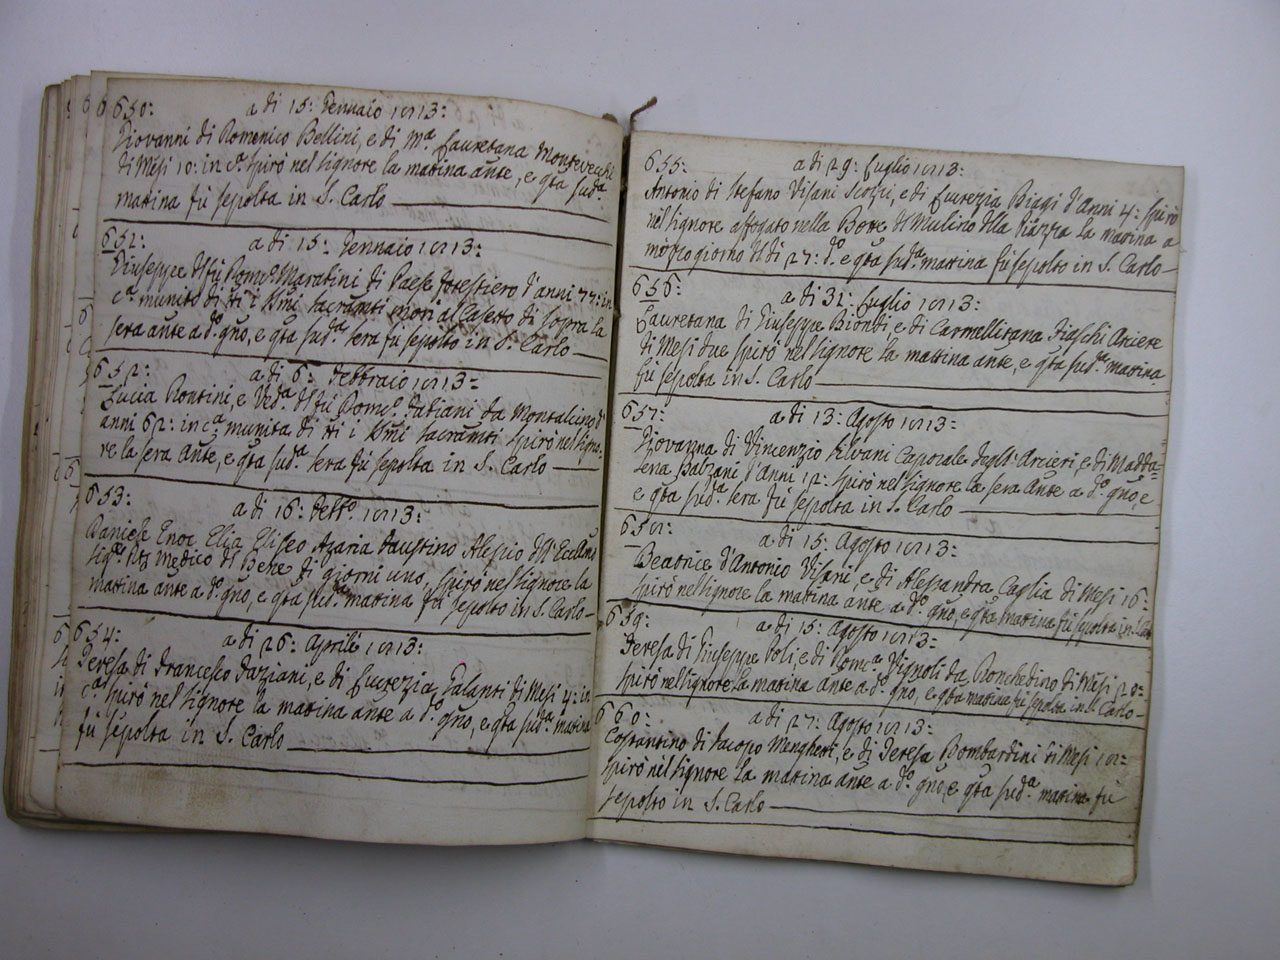 650: a di 15: Gennaio 1813:
Giovanni di Domenico Bellini, e di Mª Lauretana Montevecchi
di Mesi 10: in cª spirò nel Signore la matina ante, e qta sudª
matina fù sepolta in S. Carlo
651: a di 15: Gennaio 1813:
Giuseppe del fù Domº Maratini di Paese forestiero d'anni 77: in
cª munito di tti i SSmi Sacramti morì al Casetto di sopra la
sera ante a dº gno, e qta sudª sera fù sepolto in S. Carlo
652: a di 6: Febbraio 1813:
Lucia Rontini, e Vedª del fù Domº Fabiani da Montalcino d'
anni 62: in cª munita di tti i SSmi Sacramti spirò nel Signo-
re la sera Ante, e qta sudª sera fù sepolta in S. Carlo
653: a di 16: Febbº 1813:
Daniele Enoc Elia Eliseo Azaria Faustino Alessio dell' Eccellmo
Sigre Medico del Bene di giorni uno, spirò nel Signore la
matina ante a dº gno, e qta sudª matina fù sepolto in S. Carlo
654: a di 26: Aprile 1813:
Teresa di Francesco Faziani, e di Lucrezia Galanti di Mesi 4: in
cª spirò nel Signore la matina ante a dº gno, e qta sudª matina
fù sepolta in S. Carlo
655: a di 29: Luglio 1813:
Antonio di Stefano Visani Scozzi, e di Lucrezia Biagi d'Anni 4: spirò
nel Signore affogato nella Botte del Mulino della Piazza la matina a
mezzo giorno del di 27: dº e qta sudª matina fù sepolto in S. Carlo
656: a di 31: Luglio 1813:
Lauretana di Giuseppe Biondi e di Carmellitana Fieschi Arciere
di Mesi due spirò nel Signore la mattina ante, e qta sudª matina
fù sepolta in S. Carlo
657: a di 13: Agosto 1813:
Giovanna di Vincenzio Silvani Caporale degl' Arcieri, e di Madda=
lena Balzani d'Anni 12: spirò nel Signore la sera Ante a dº gno, e
e qta sudª sera fù sepolta in S. Carlo
658: a di 15: Agosto 1813:
Beatrice d'Antonio Visani, e di Alessandra Caglia di Mesi 16:
spirò nel Signore la matina ante a dº gno, e qta matina fù sepolta in S. Carlo
659: a di 15: Agosto 1813:
Teresa di Giuseppe Poli, e di Domcª Vignoli da Ronchedino di Mesi 20:
spirò nel Signore la matina ante a dº gno, e qta matina fù sepolta in S. Carlo
660: a di 27: Agosto 1813:
Costantino di Jacopo Menghetti, e di Teresa Bombardini di Mesi 18:
spirò nel Signore la matina ante a dº gno, e qta sudª matina fù
sepolto in S. Carlo